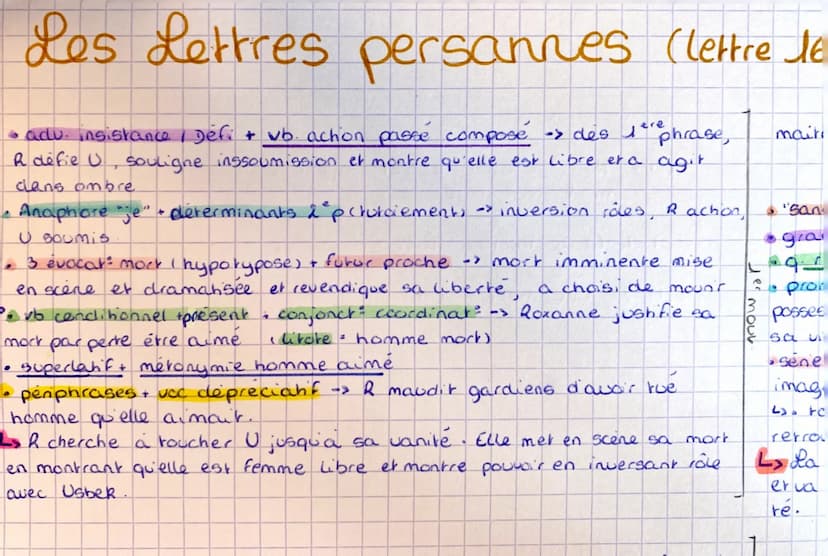 Les Lettres persannes (lettre 16
• adv. insistance / Défi + vb action passé composé -> dès 1ère phrase,
R défie U, souligne inssoumission et montre qu'elle est libre et a agit
dans ombre
• Anaphore "je" + déterminants 2e p (tutoiement) -> inversion rôles, R action,
U soumis.
• 3 évocat° mort (hypotypose) + futur proche -> mort imminente mise
en scène et dramatisée et revendique sa liberté, a choisi de mourir
• vb conditionnel + présent + conjonct° coordinat° -> Roxanne justifie sa
mort par perte être aimé (litote = homme mort)
• superlatif + métonymie homme aimé
• périphrases + voc dépréciatif -> R maudit gardiens d'avoir tué
homme qu'elle aimait.
↳ R cherche à toucher U jusqu'à sa vanité. Elle met en scène sa mort
en montrant qu'elle est femme libre et montre pouvoir en inversant rôle
avec Usbek.
1er mouv
• "san
• gra
• pro
posse
sa vi
• série
imag
retro
↳ La
et va
ré.